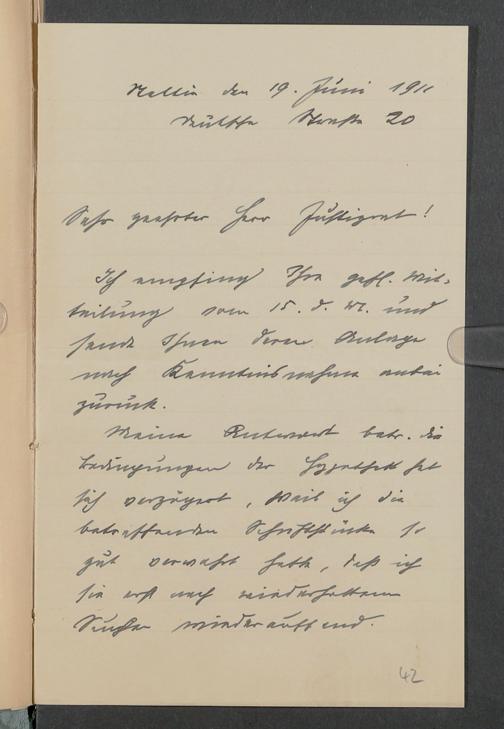 Stettin den 19. Juni 1911
Deutsche Straße 20
Sehr geehrter Herr Justizrat!
Ich empfing Ihre gefl. Mit-
teilung vom 15. d. M. und
sende Ihnen deren Anlage
nach Kenntnisnahme anbei
zurück.
Meine Antwort betr. die
Bedingungen der Hypothek hat
sich verzögert, weil ich die
betreffenden Schriftstücke so
gut verwahrt hatte, daß ich
sie erst nach wiederholtem
Suchen wiederauffand.
42